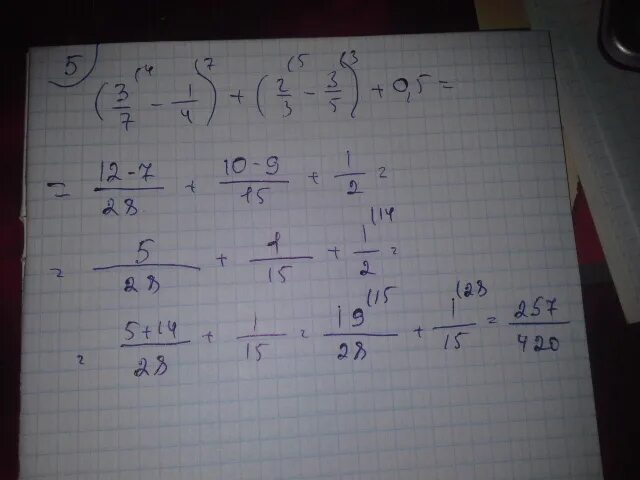 5
(3/7 (4 - 1/4 (7) + (2/3 (5 - 3/5 (3) + 0,5 =
= (12-7)/28 + (10-9)/15 + 1/2 =
= 5/28 + 1/15 + 1/2 (14 =
= (5+14)/28 + 1/15 = 19/28 (15 + 1/15 (28 = 257/420